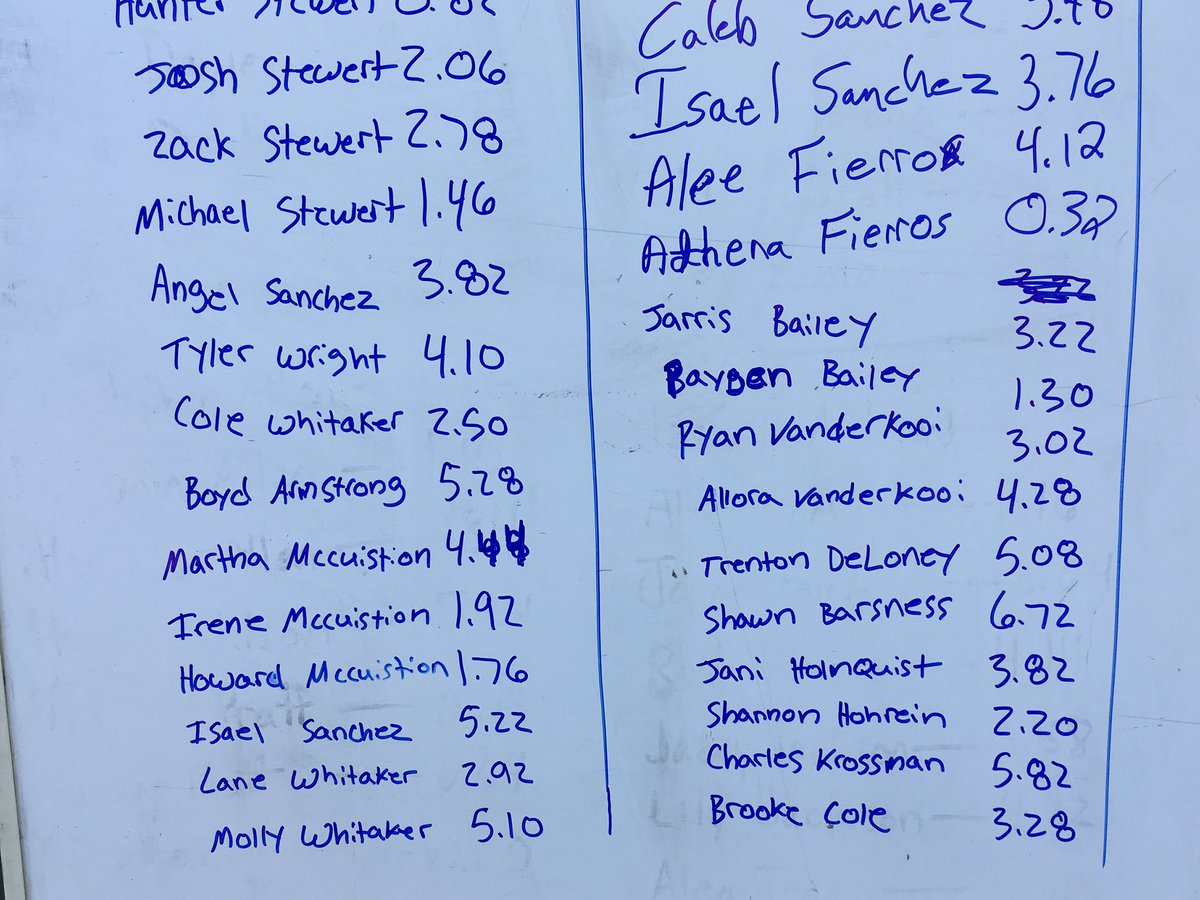 Hunter Stewert 0.82
Josh Stewert 2.06
Zack Stewert 2.78
Michael Stewert 1.46
Angel Sanchez 3.82
Tyler Wright 4.10
Cole Whitaker 2.50
Boyd Armstrong 5.28
Martha Mccuistion 4.44
Irene Mccuistion 1.92
Howard Mccuistion 1.76
Isael Sanchez 5.22
Lane Whitaker 2.92
Molly Whitaker 5.10
Caleb Sanchez 3.48
Isael Sanchez 3.76
Alee Fierros 4.12
Athena Fierros 0.32
Jarris Bailey 3.22
Bailey 1.30
Ryan Vanderkooi 3.02
Allora Vanderkooi 4.28
Trenton DeLoney 5.08
Shawn Barsness 6.72
Jani Holmquist 3.82
Shannon Hohrein 2.20
Charles Krossman 5.82
Brooke Cole 3.28